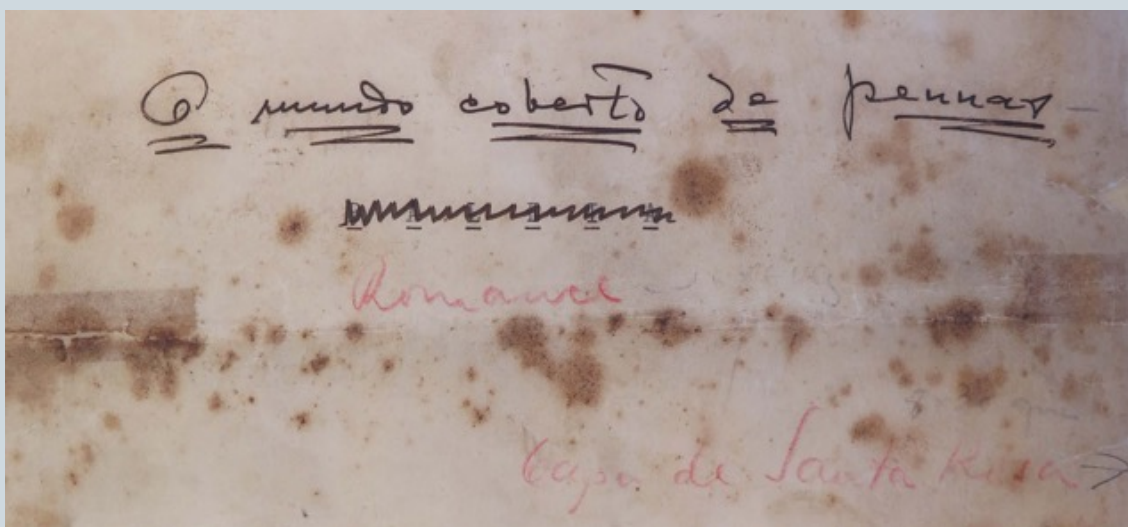 O mundo coberto de pennas
Romance
Capa de Santa Rosa